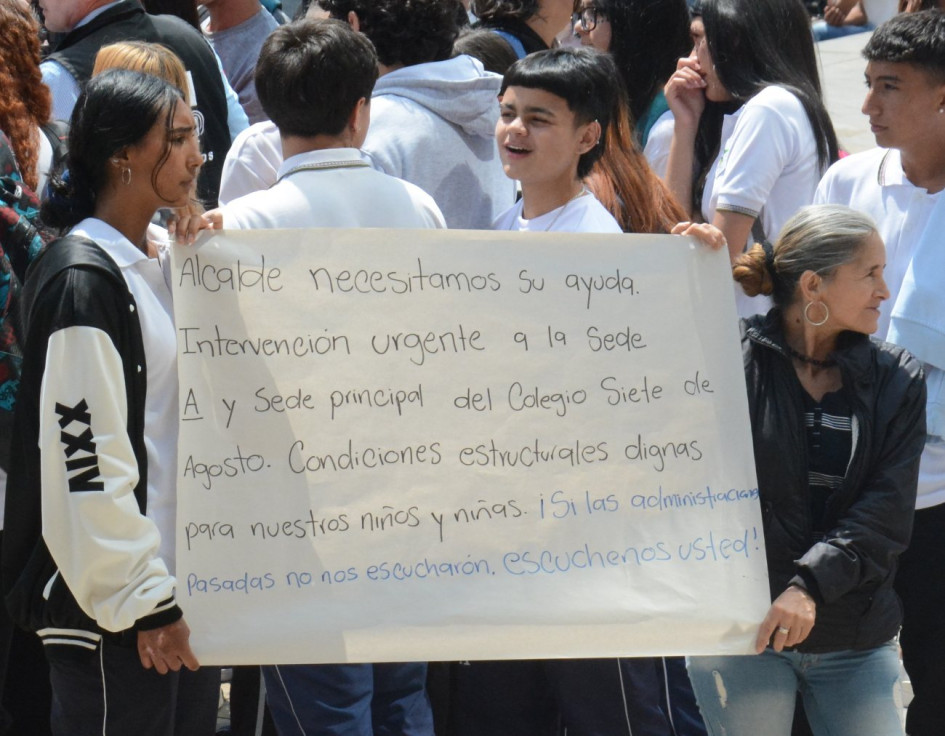 Alcalde necesitamos su ayuda.
Intervención urgente a la Sede
A y Sede principal del Colegio Siete de
Agosto. Condiciones estructurales dignas
para nuestros niños y niñas. ¡Si las administraciones
pasadas no nos escucharón, escuchenos usted!
XXIV